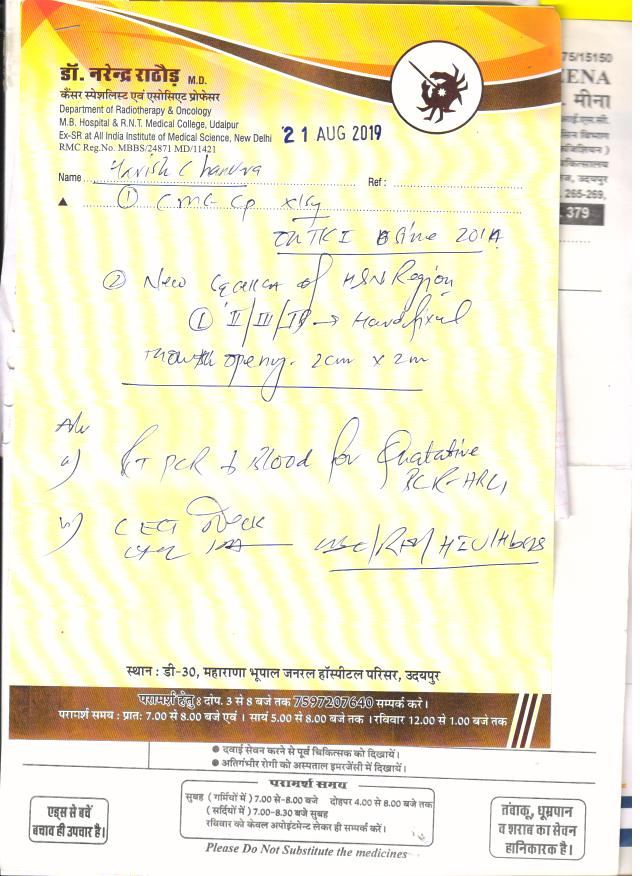 डॉ. नरेन्द्र राठौड़ M.D.
कैंसर स्पेशलिस्ट एवं एसोसिएट प्रोफेसर
Department of Radiotherapy & Oncology
M.B. Hospital & R.N.T. Medical College, Udaipur
Ex-SR at All India Institute of Medical Science, New Delhi
RMC Reg.No. MBBS/24871 MD/11421
21 AUG 2019
Name
Ref :
① CML CP
on TKI since 2014
② New of H&N Region
① II/III/IB → Hard fixed
Mouth opening. 2cm x 2m
Adv
a) RT PCR Blood for Quatative
BCR-ABL1
b) CECT Neck
CBC/RFT/HIV/HbsAg
स्थान : डी-30, महाराणा भूपाल जनरल हॉस्पीटल परिसर, उदयपुर
परामर्श हेतु : दोप. 3 से 8 बजे तक 7597207640 सम्पर्क करें।
परामर्श समय : प्रातः 7.00 से 8.00 बजे एवं । सायं 5.00 से 8.00 बजे तक । रविवार 12.00 से 1.00 बजे तक
75/15150
EENA
. मीना
265-269,
379
● दवाई सेवन करने से पूर्व चिकित्सक को दिखायें।
● अतिगंभीर रोगी को अस्पताल इमरजेंसी में दिखायें।
परामर्श समय
सुबह ( गर्मियों में ) 7.00 से-8.00 बजे दोहपर 4.00 से 8.00 बजे तक
(सर्दियों में ) 7.00-8.30 बजे सुबह
रविवार को केवल अपोइंटमेन्ट लेकर ही सम्पर्क करें।
एड्स से बचें
बचाव ही उपचार है।
तंबाकू, धूम्रपान
व शराब का सेवन
हानिकारक है।
Please Do Not Substitute the medicines